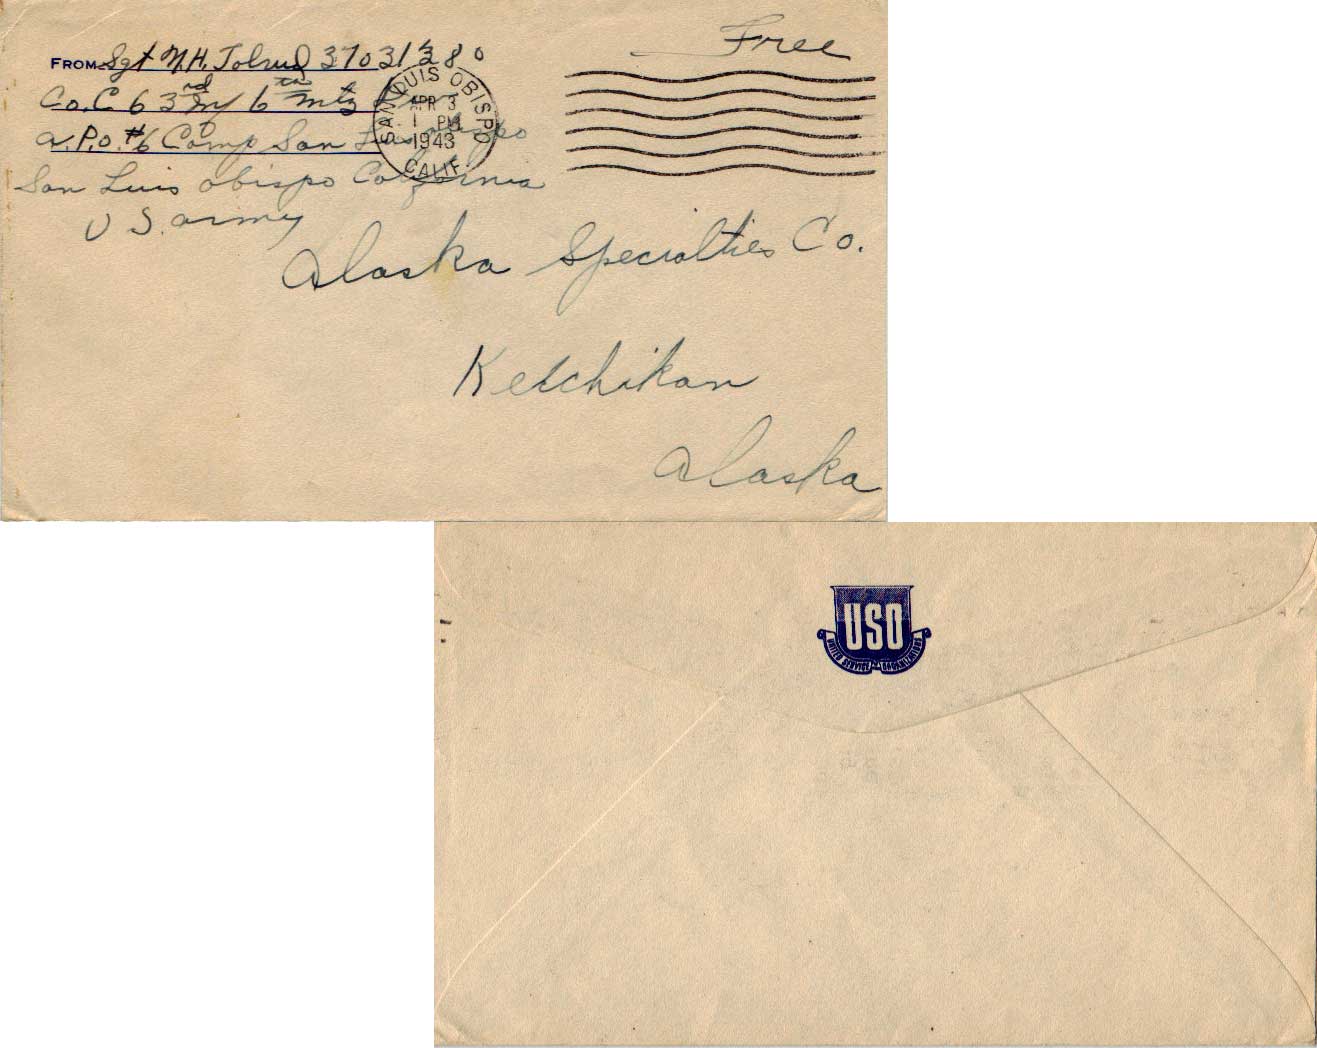 Free
FROM Sgt N.H. Tolrud 37031380
Co. C 63rd Inf 6th Mtz
A.P.O. #6 Camp San Luis Obispo
San Luis Obispo California
U S. Army
SAN LUIS OBISPO
APR 3
1 PM
1943
CALIF.
Alaska Specialties Co.
Ketchikan
Alaska
USO
UNITED SERVICE ORGANIZATIONS